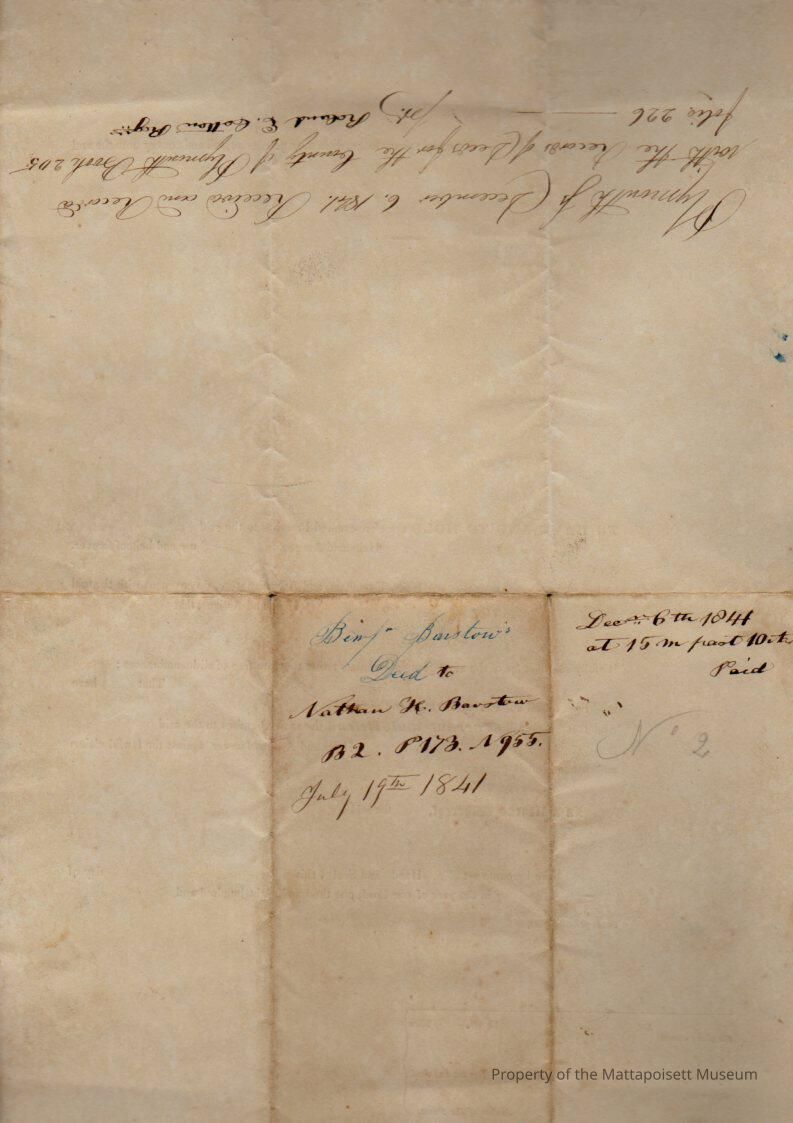 Plymouth ss. December 6. 1841. Received and Recorded
with the Records of Deeds for the County of Plymouth Book 205
folio 226 Roland E. Cotton Regr.
Benjn Barstow's
Deed to
Nathan H. Barstow
B 2. P 173. N 955.
July 19th 1841
Decr. 6th 1841
at 15 m past 10
Paid
No 2
Property of the Mattapoisett Museum